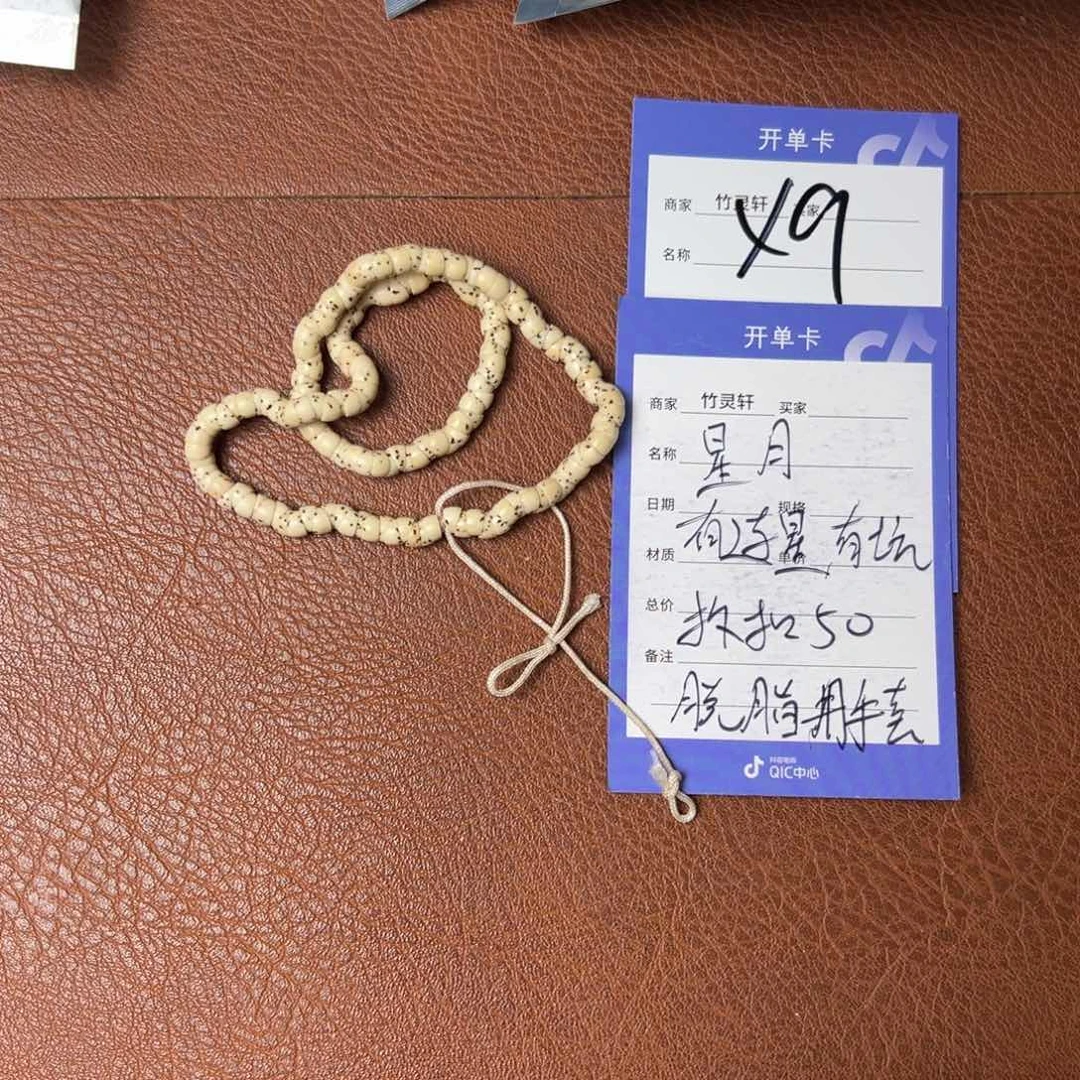 开单卡
商家 竹灵轩 买家
名称
49
开单卡
商家 竹灵轩 买家
名称 星月
日期 规格
有连星 有坑
材质 单价
总价
扣50
备注
脱脂 用手套
抖音电商
QIC中心